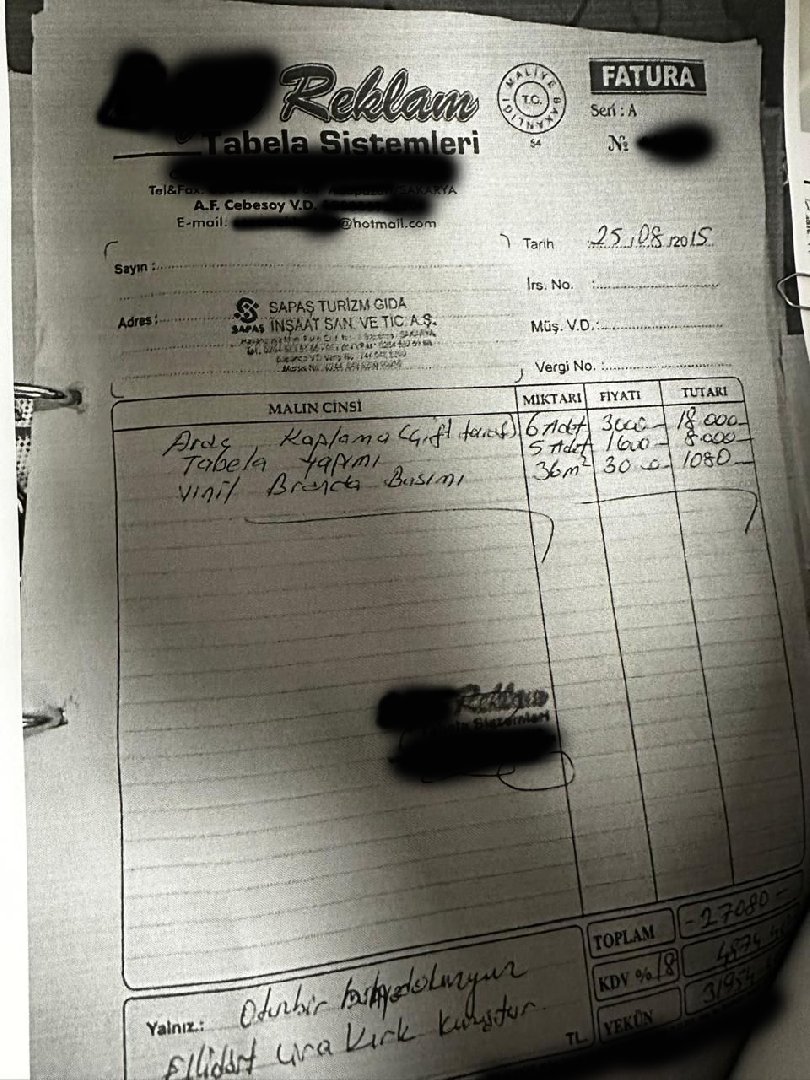 Reklam
Tabela Sistemleri
T.C. MALİYE BAKANLIĞI
54
FATURA
Seri : A
№
Tel&Fax: SAKARYA
A.F. Cebesoy V.D.
E-mail: @hotmail.com
Tarih 25/08/2015
Sayın :
İrs. No. :
Adres :
SAPAŞ
SAPAŞ TURİZM GIDA
İNŞAAT SAN. VE TİC. A.Ş.
Müş. V.D. :
Vergi No. :
MALIN CİNSİ MİKTARI FİYATI TUTARI
Araç Kaplama (Çift taraf) 6 Adet 3000- 18.000-
Tabela Yapımı 5 Adet 1600- 8.000-
Vinil Branda Basımı 36m² 30 1080-
Reklam
Tabela Sistemleri
TOPLAM -27080-
KDV %18 4874
YEKÜN 31954
Yalnız.: Otuzbir
Ellidört Lira Kırk Kuruştur
TL.